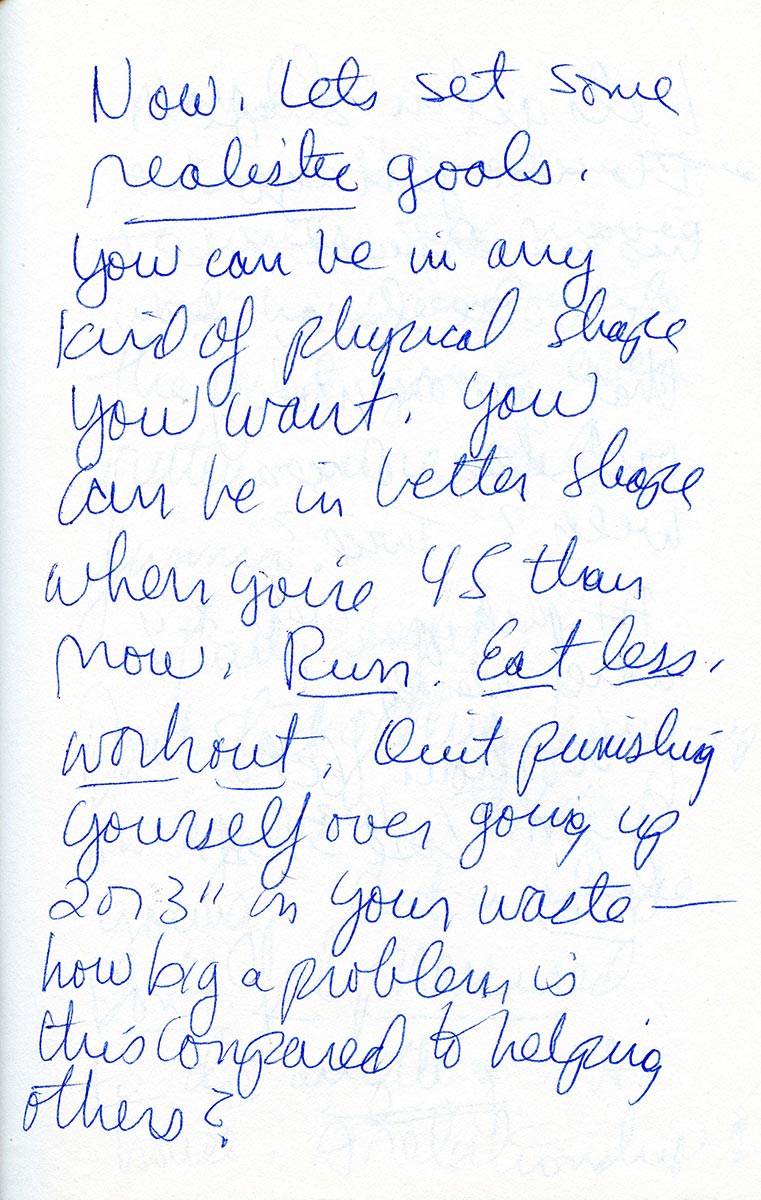 Now. Lets set some
realistic goals.
You can be in any
kind of physical shape
you want. You
can be in better shape
when you're 45 than
now. Run. Eat less.
workout. Quit punishing
yourself over going up
2 or 3" in your waste —
how big a problem is
this compared to helping
others?